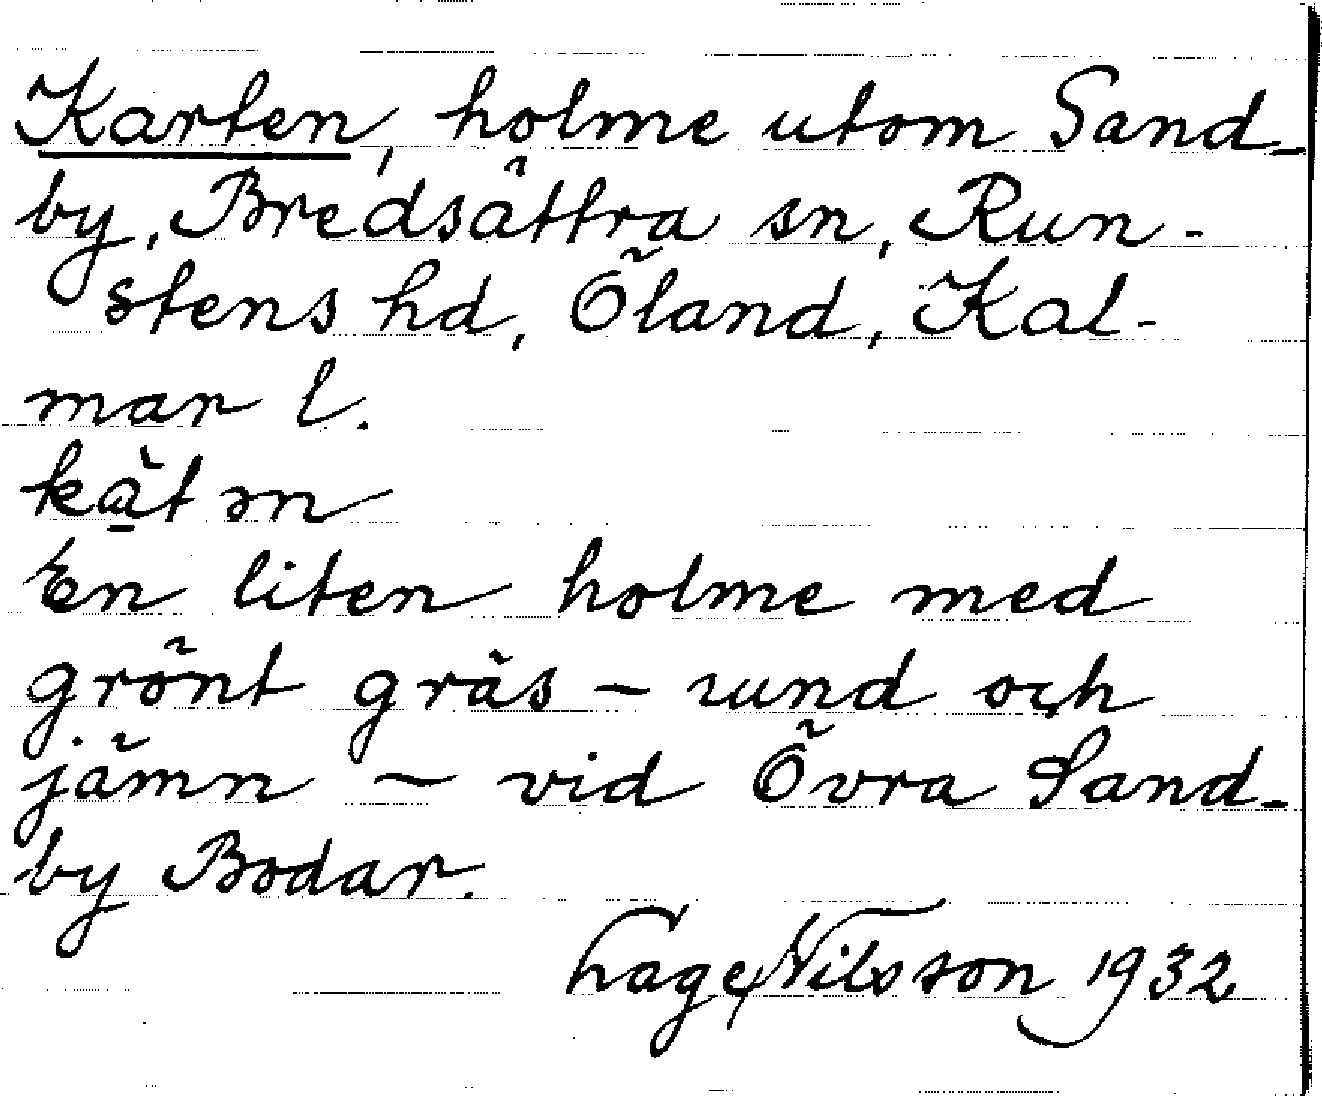 Karten, holme utom Sand-
by, Bredsättra sn, Run-
stens hd, Öland, Kal-
mar l.
En liten holme med
grönt gräs – rund och
jämn – vid Övra Sand-
by Bodar.
Hage Nilsson 1932